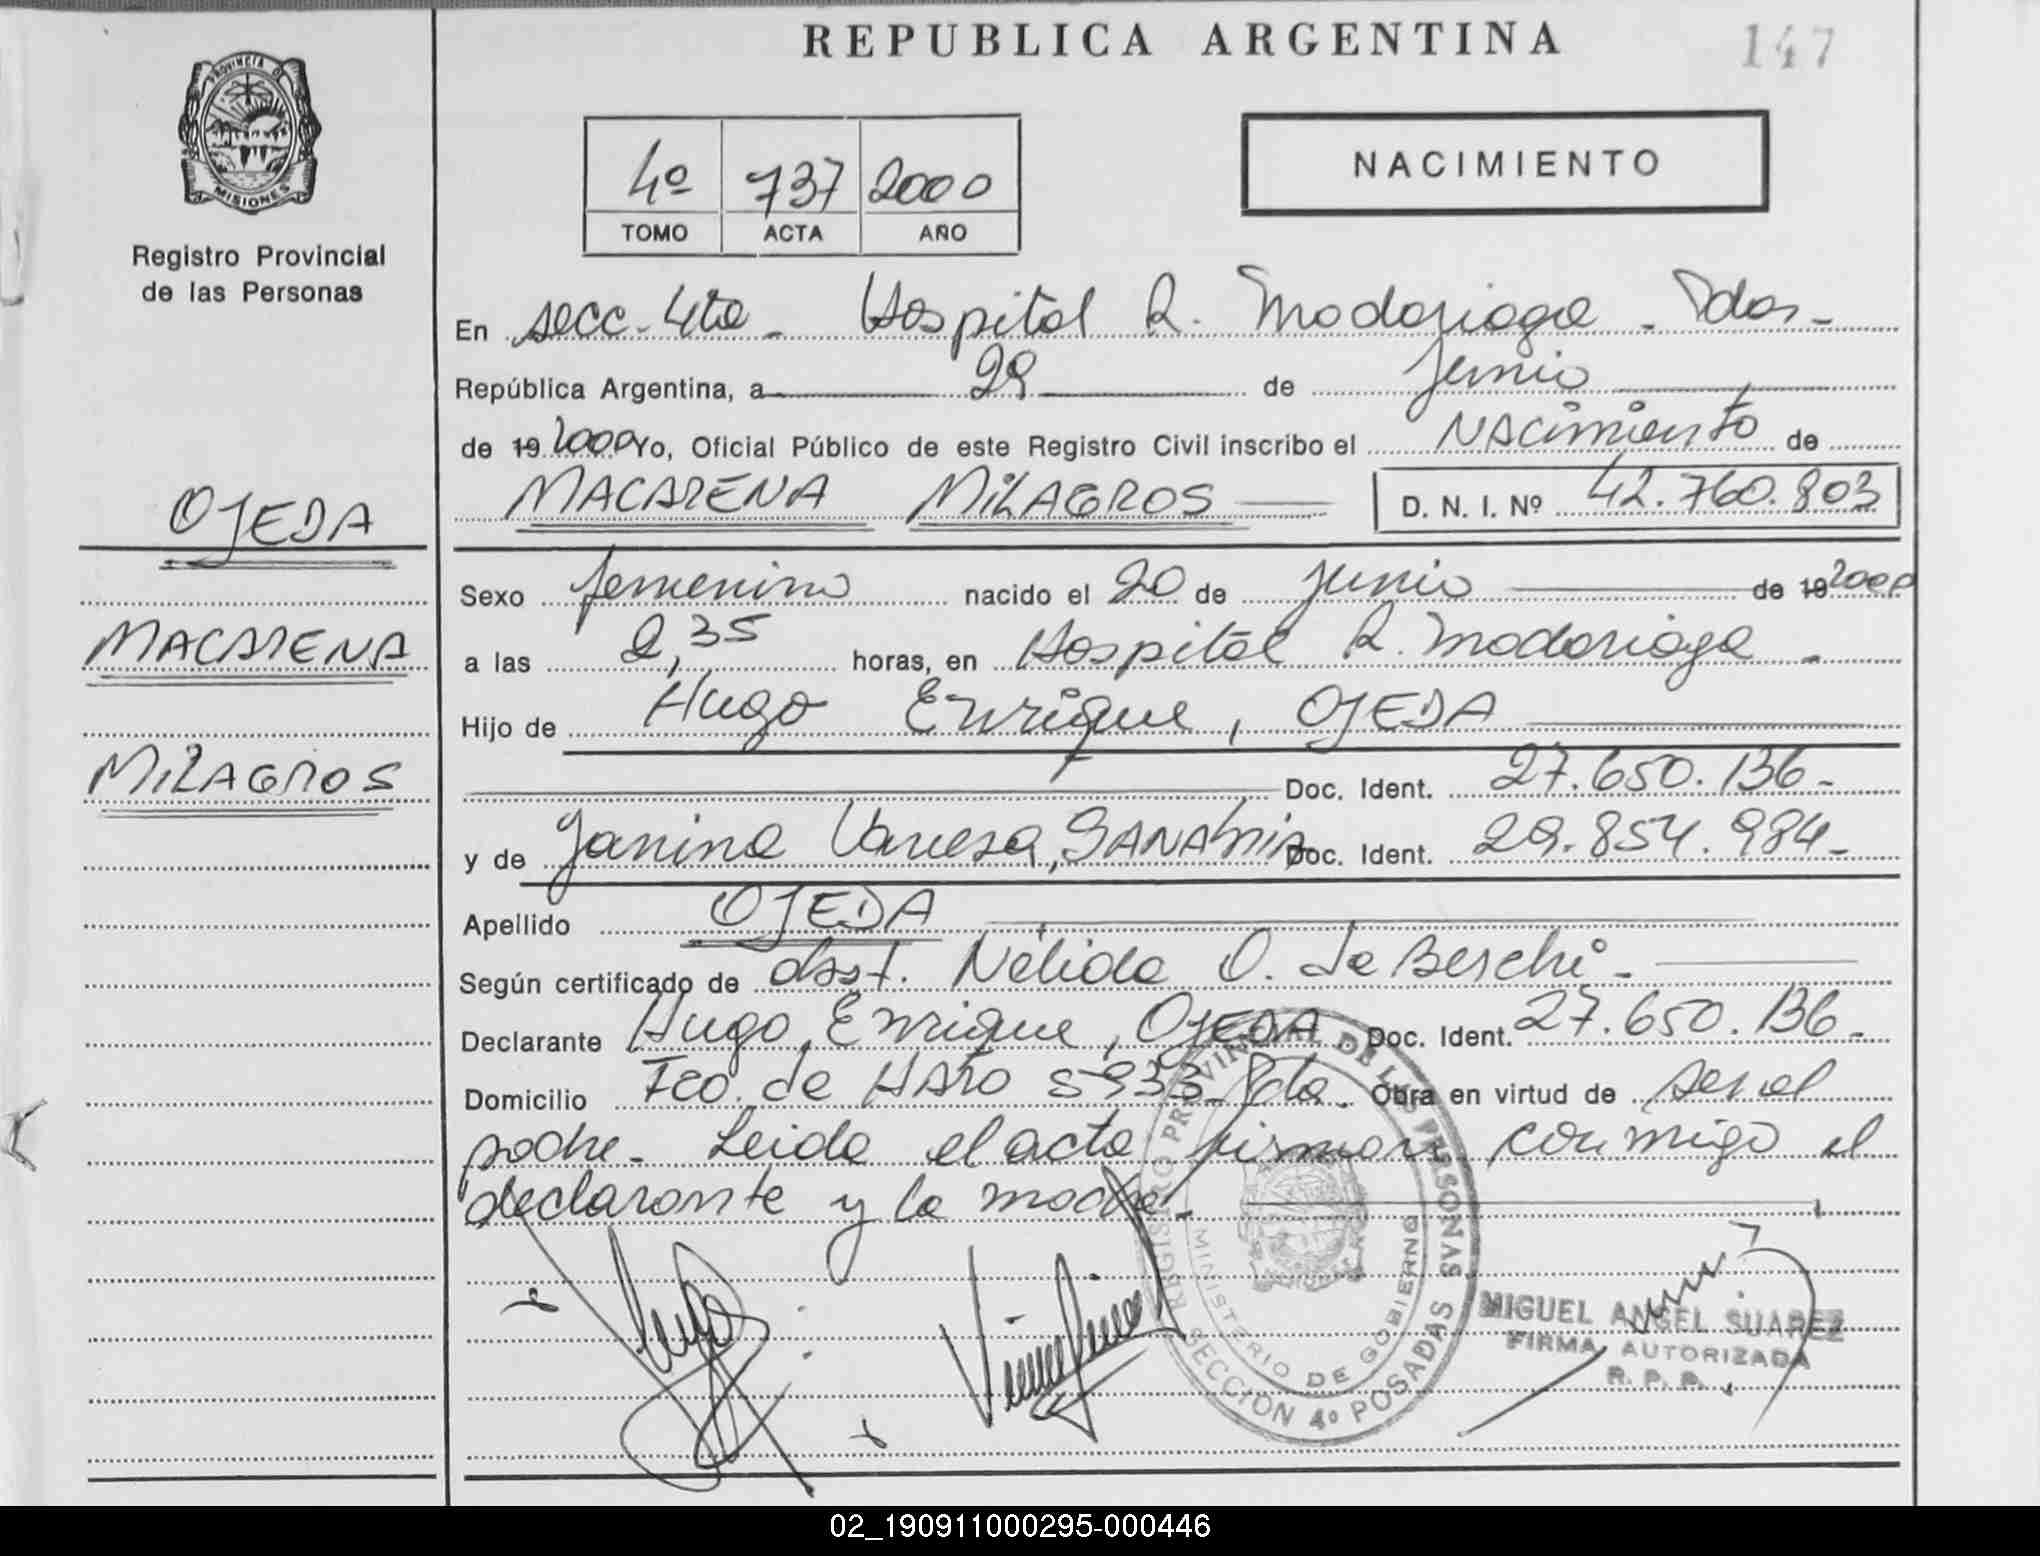 REPUBLICA ARGENTINA
147
PROVINCIA DE
MISIONES
Registro Provincial
de las Personas
4º 737 2000
TOMO ACTA AÑO
NACIMIENTO
En secc. 4ta - Hospital R. Madariaga - Pdas -
República Argentina, a 29 de Junio
de 19 2000 Yo, Oficial Público de este Registro Civil inscribo el NACimiento de
MACARENA MiLAGROS D. N. I. Nº 42.760.803
OJEDA
MACARENA
MiLAGROS
Sexo femenino nacido el 20 de Junio de 19 2000
a las 2,35 horas, en Hospital R. Madariaga -
Hijo de Hugo Enrique, OJEDA
Doc. Ident. 27.650.136-
y de Janina Vanesa, SANAbriA Doc. Ident. 29.854.984-
Apellido OJEDA
Según certificado de obst. Nélida O. de Berchi -
Declarante Hugo Enrique, OJEDA Doc. Ident. 27.650.136-
Domicilio Fco. de HAro 5933 Pda. Obra en virtud de ser el
padre - Leida el acta firman conmigo el
declarante y la madre -
REGISTRO PROVINCIAL DE LAS PERSONAS
MINISTERIO DE GOBIERNO
SECCION 4º POSADAS
MIGUEL ANGEL SUAREZ
FIRMA AUTORIZADA
R. P. P.
02_190911000295-000446